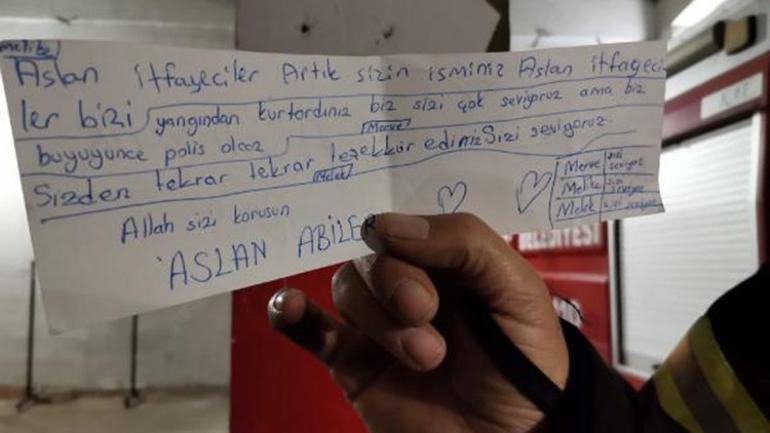 Melike
Aslan itfayeciler Artık sizin isminiz Aslan itfayeci
ler bizi yangından kurtardınız biz sizi çok seviyoruz ama biz
buyuyunce polis olcaz Merve
Sizden tekrar tekrar teşekkür ediniz Sizi seviyoruz.
Melek
Allah sizi korusun
ASLAN ABİLER
Merve sizi seviyor
Melike sizi seviyor
Melek sizi seviyor
BELEDİYESİ